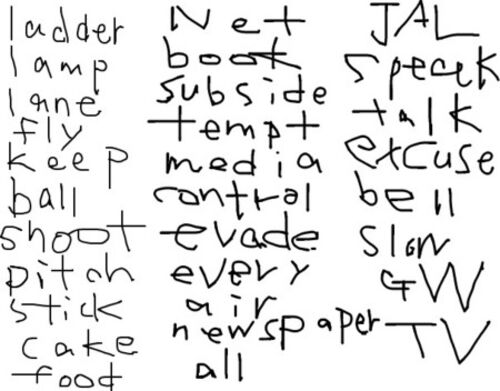 ladder
lamp
lane
fly
keep
ball
shoot
pitch
stick
cake
food
Net
book
subside
tempt
media
control
evade
every
air
newspaper
all
JAL
speak
talk
excuse
bell
slow
GW
TV